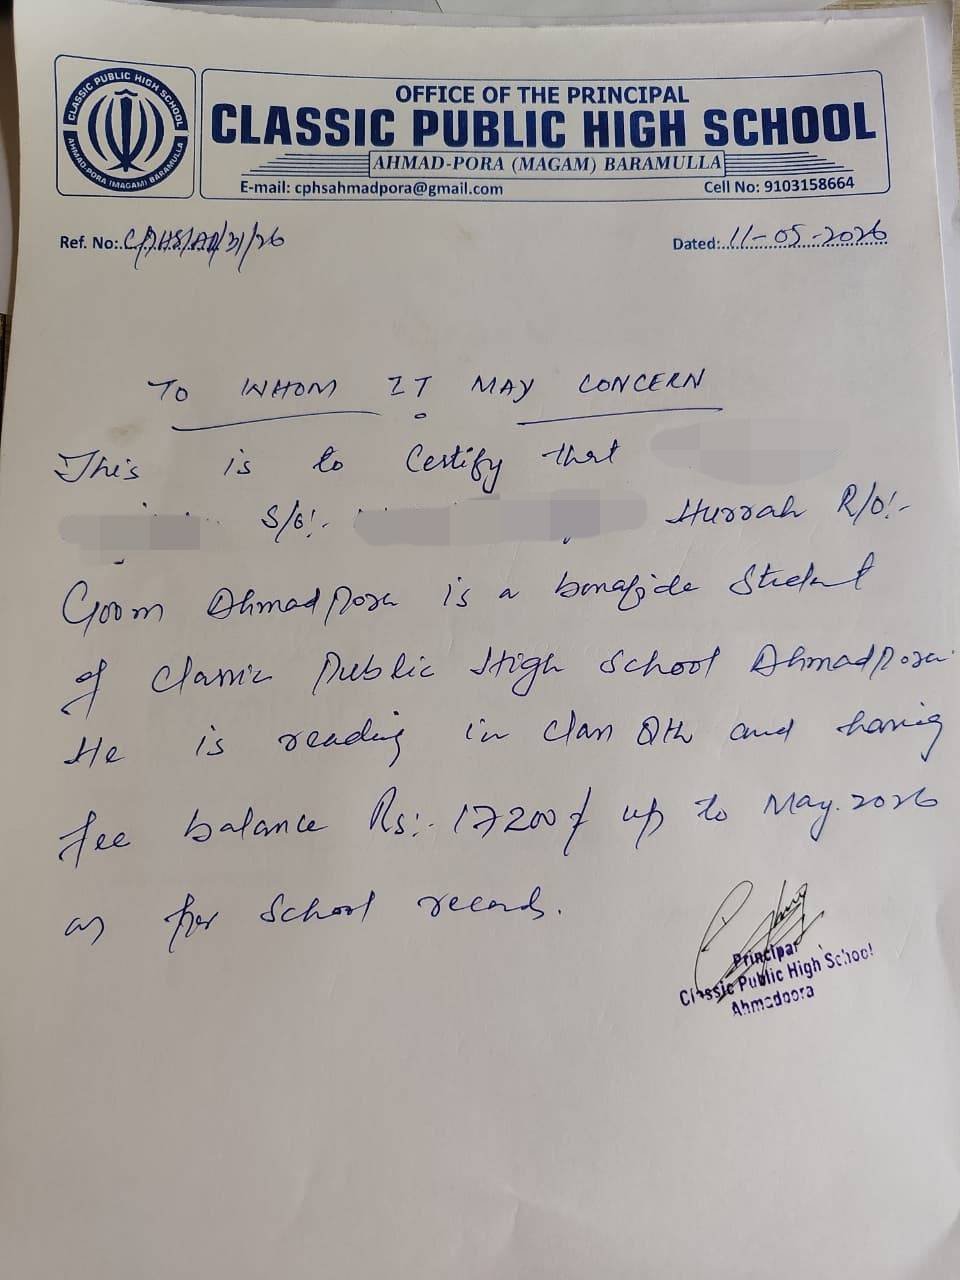 CLASSIC PUBLIC HIGH SCHOOL
AHMAD-PORA (MAGAM) BARAMULLA
OFFICE OF THE PRINCIPAL
CLASSIC PUBLIC HIGH SCHOOL
AHMAD-PORA (MAGAM) BARAMULLA
E-mail: cphsahmadpora@gmail.com Cell No: 9103158664
Ref. No:. Dated:. 11-05-2026
TO WHOM IT MAY CONCERN
This is to Certify that
S/o:- Hurrah R/o:-
Goom Ahmadpora is a bonafide Student
of Classic Public High School Ahmadpora.
He is reading in class and having
fee balance Rs:- 17200/ up to May. 2026
as per School records.
Principal
Classic Public High School
Ahmadpora